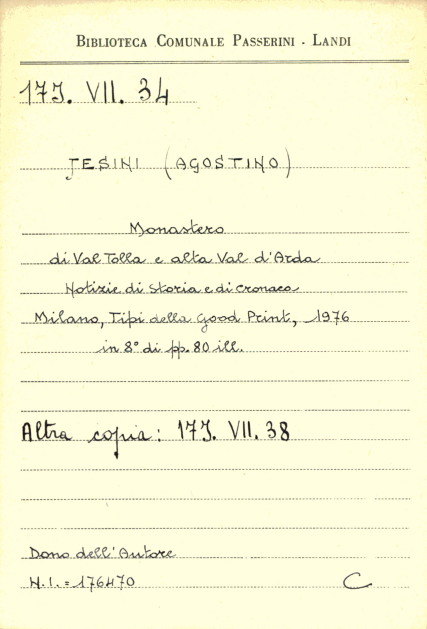 BIBLIOTECA COMUNALE PASSERINI - LANDI
17J. VII. 34
JESINI (AGOSTINO)
Monastero
di Val Tolla e alta Val d'Arda
Notizie di Storia e di Cronaca
Milano, Tipi della Good Print, 1976
in 8° di pp. 80 ill.
Altra copia: 17J. VII. 38
Dono dell'Autore
N.I. = 176470
C